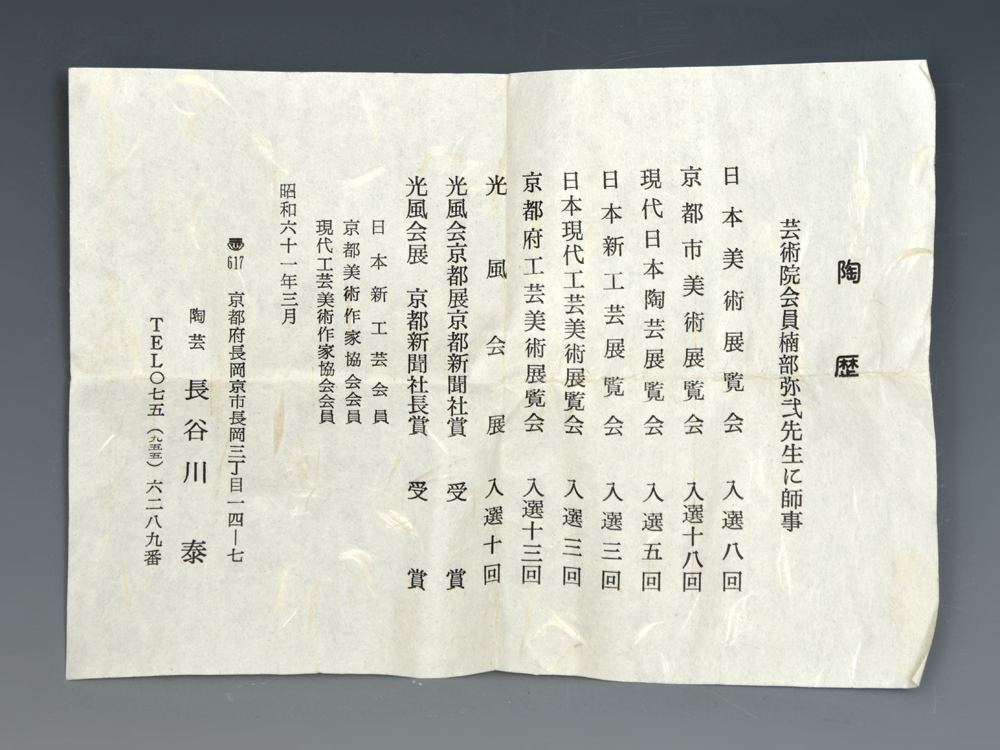 陶歴
芸術院会員楠部弥弌先生に師事
日本美術展覧会 入選八回
京都市美術展覧会 入選十八回
現代日本陶芸展覧会 入選五回
日本新工芸展覧会 入選三回
日本現代工芸美術展覧会 入選三回
京都府工芸美術展覧会 入選十三回
光風会展 入選十回
光風会京都展京都新聞社賞 受賞
光風会展 京都新聞社長賞 受賞
日本新工芸会員
京都美術作家協会会員
現代工芸美術作家協会会員
昭和六十一年三月
617 京都府長岡京市長岡三丁目一四―七
陶芸 長谷川 泰
TEL〇七五(九五五)六二八九番